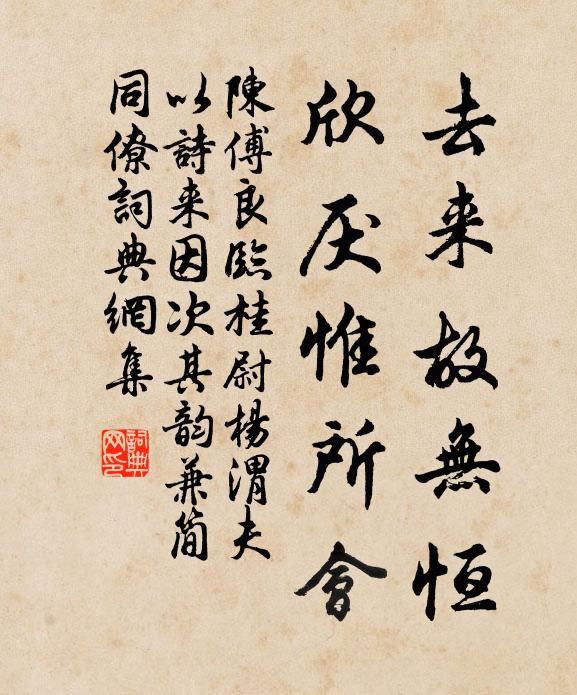 去来故無恒
欣厌惟所會
陳傅良臨桂尉楊渭夫
以詩来因次其韵兼简
同僚詞典網集
詞典网印